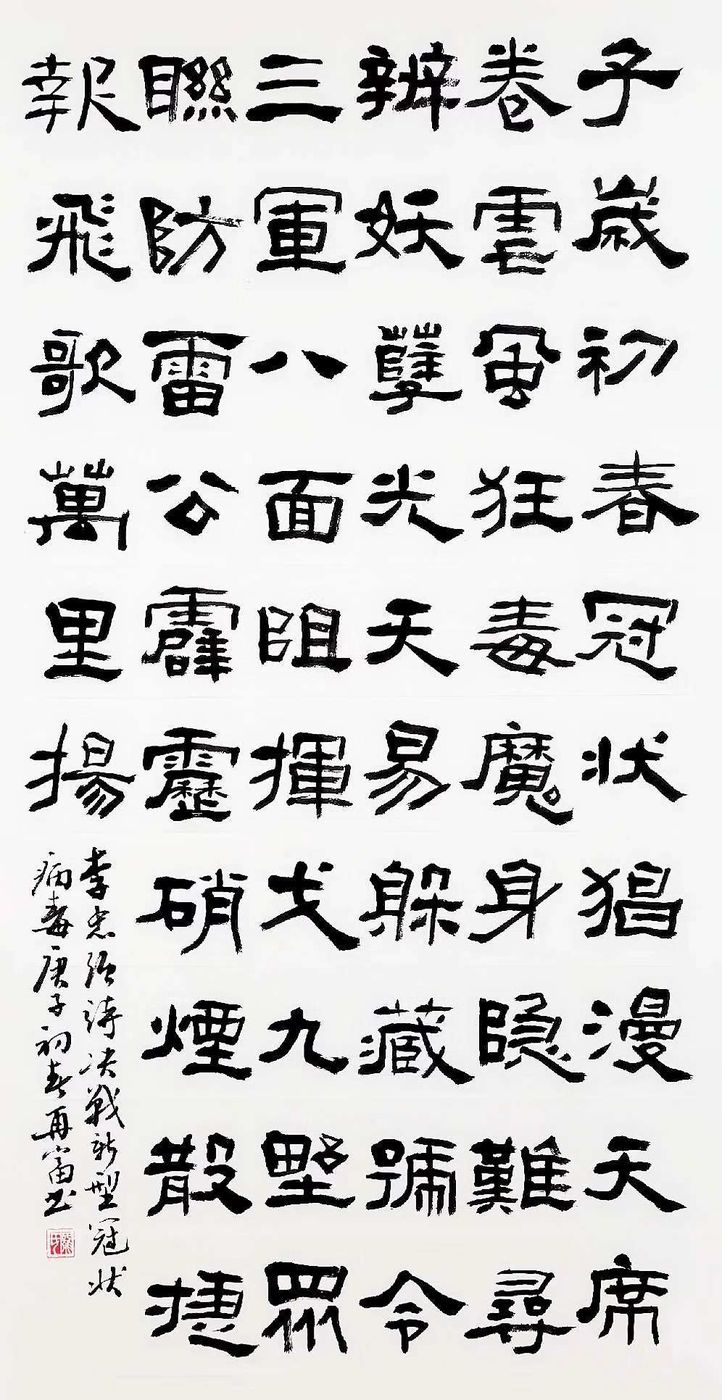 子歲初春冠状猖漫天席
卷雲風狂毒魔身隐難尋
辨妖孽光天易躲藏號令
三軍八面阻揮戈九墅眾
聯防雷公霹靂硝煙散捷
報飛歌萬里揚
李忠强詩决戰新型冠状
病毒庚子初春再富书